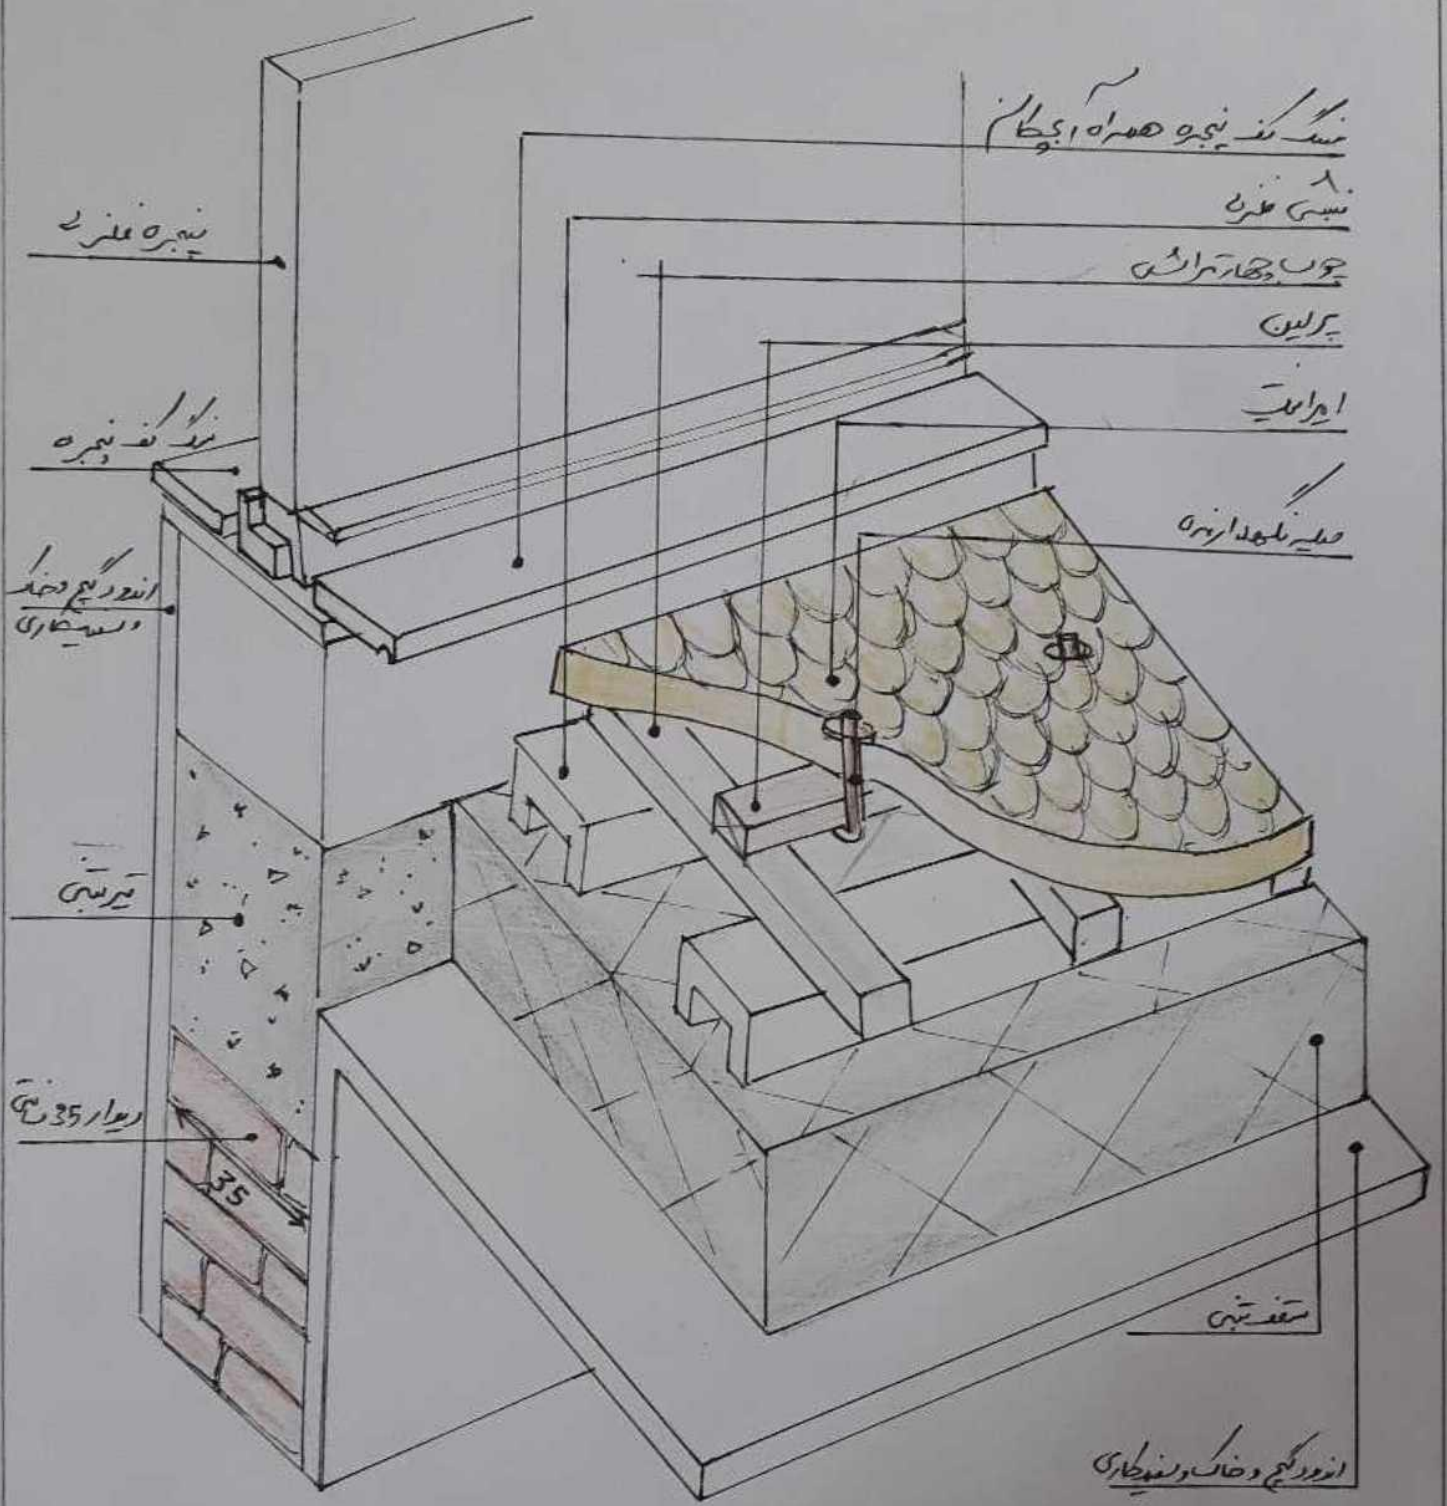 سنگ کف پنجره همراه آبچکان
نبشی فلزی
چوب چهارتراش
پرلین
ایرانیت
میله نگهدارنده
پنجره فلزی
سنگ کف پنجره
اندود گچ و خاک
و سفیدکاری
تیر بتنی
دیوار 35 سانتی
35
سقف بتنی
اندود گچ و خاک و سفیدکاری